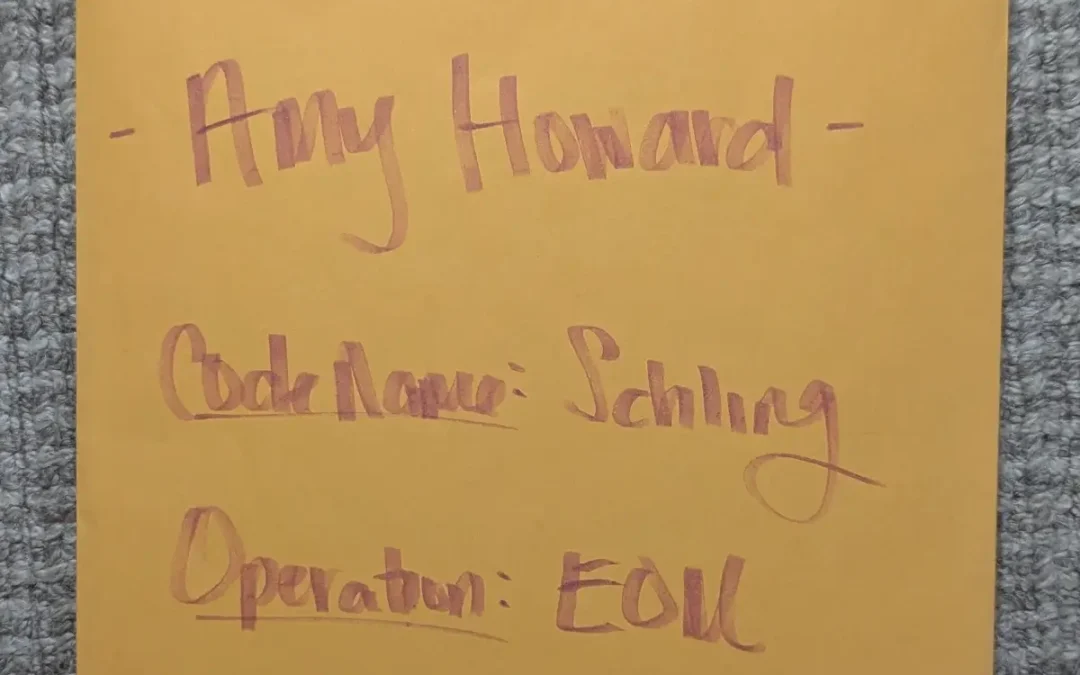 - Amy Howard -
Code Name: Schling
Operation: